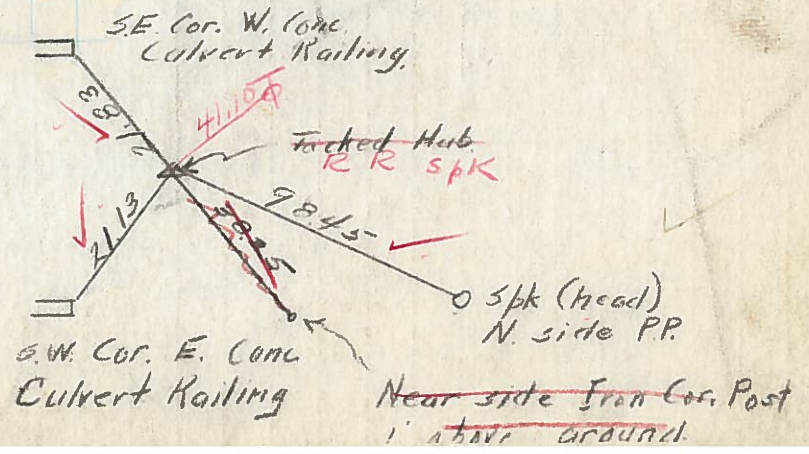 S.E. Cor. W. Conc.
Culvert Railing.
21.83
41.10
Tacked Hub
R R SpK
98.45
21.13
Spk (head)
N. side P.P.
S.W. Cor. E. Conc
Culvert Railing
Near side Iron Cor. Post
1' above ground.